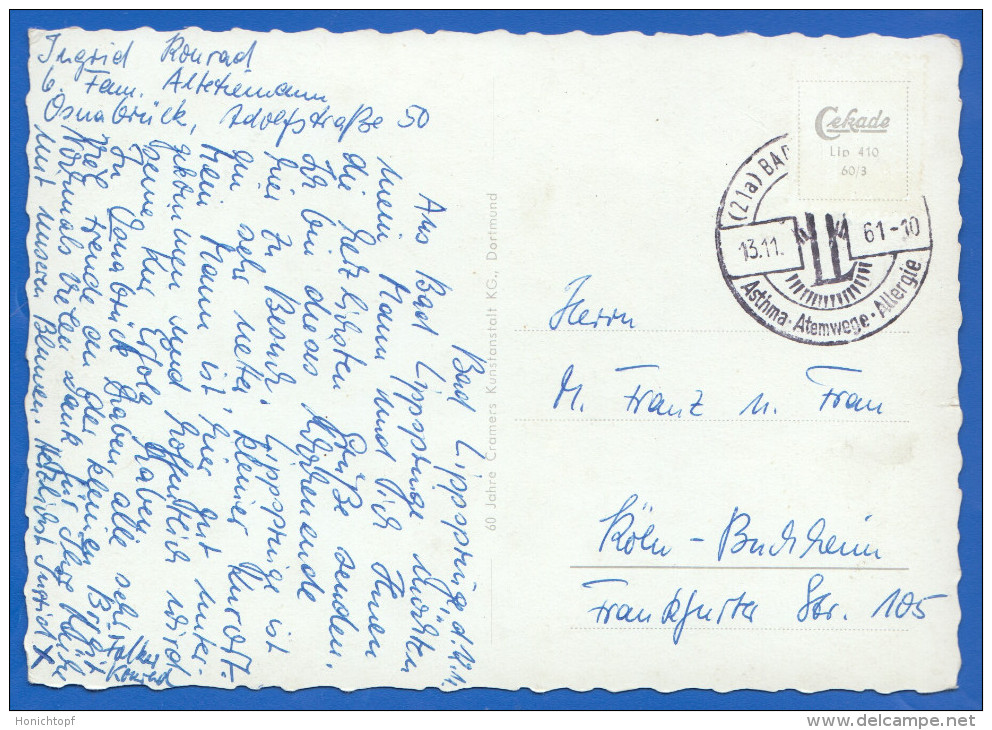 Ingrid Konrad
b. Fam. Altetiemann
Osnabrück, Adolfstraße 50
Bad Lippspringe, d. 12.11.
Aus Bad Lippspringe möchten
mein Mann und ich Ihnen
die herzlichsten Grüße senden.
Ich bin dieses Wochenende
hier zu Besuch. Lippspringe ist
ein sehr netter, kleiner Kurort.
Mein Mann ist hier gut unter-
gekommen und hoffentlich wird
seine Kur Erfolg haben.
In Osnabrück haben alle sehr
viel Freude an der kleinen
Nochmals vielen Dank für Ihre Mühe
mit unseren Herzlichst Ingrid x
Konrad
60 Jahre Cramers Kunstanstalt KG., Dortmund
Cekade
Lip 410
60/3
(21a) BAD
13.11. 61-10
Asthma · Atemwege · Allergie
Herrn
M. Franz u. Frau
Köln - Buchheim
Frankfurter Str. 105
Honichtopf
www.delcampe.net